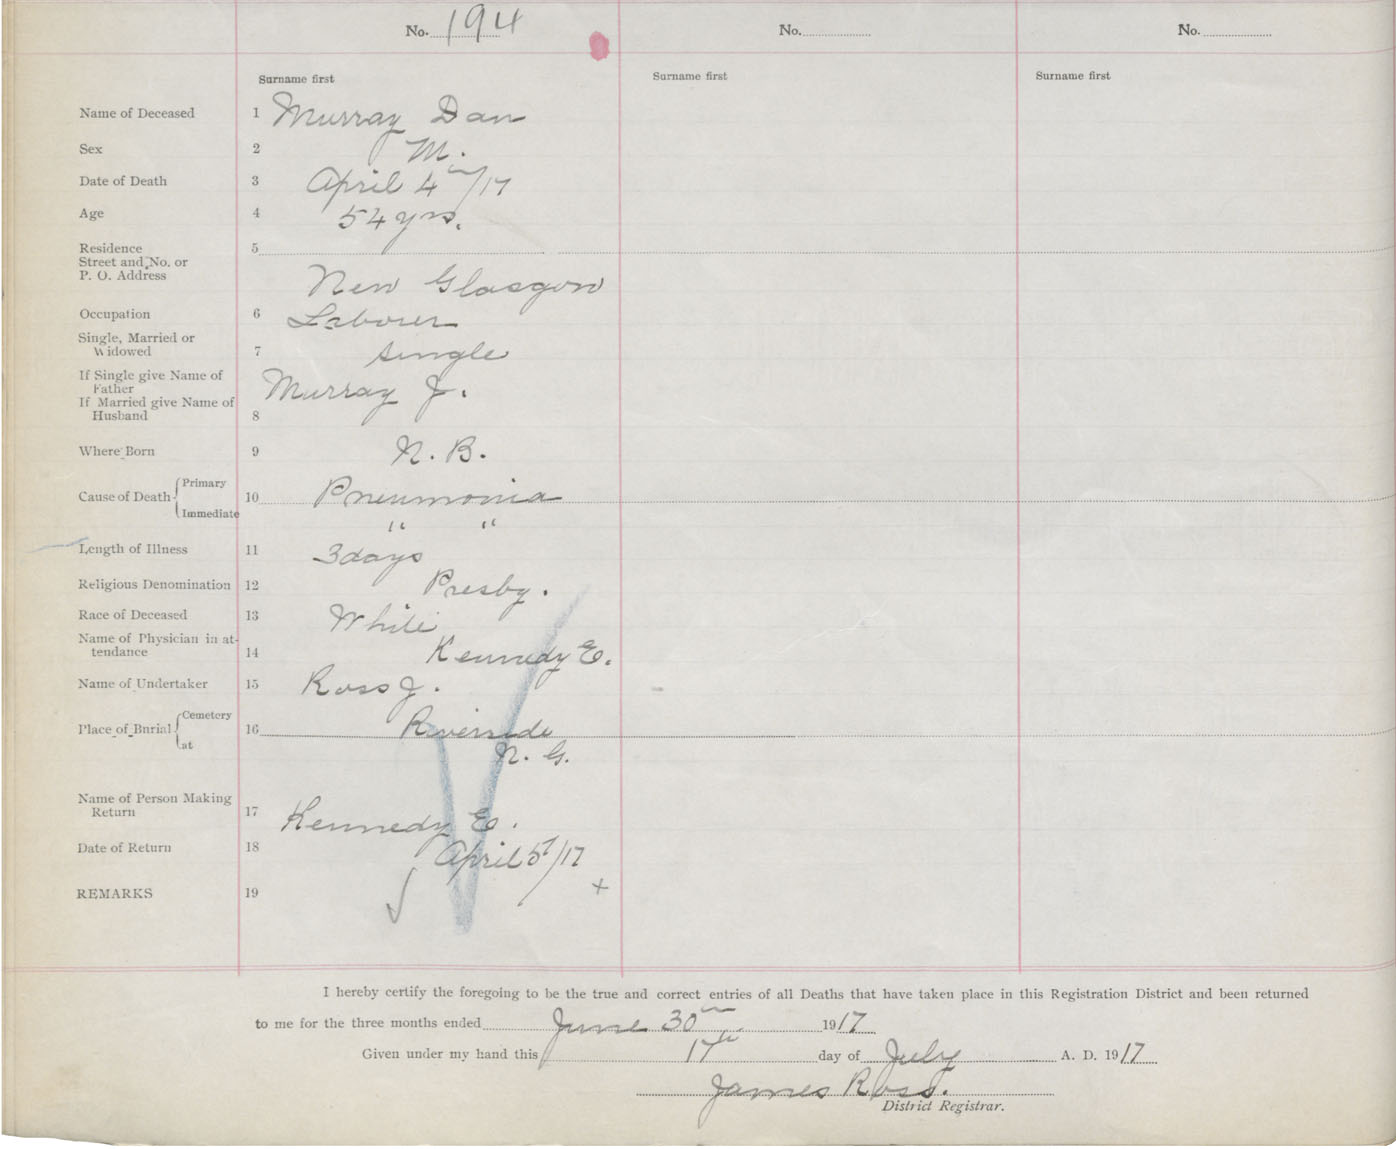 No. 194 No. No.
Surname first Surname first Surname first
Name of Deceased 1 Murray Dan
Sex 2 M.
Date of Death 3 April 4th/17
Age 4 54 yrs.
Residence 5
Street and No. or
P. O. Address New Glasgow
Occupation 6 Laborer
Single, Married or
Widowed 7 single
If Single give Name of
Father Murray J.
If Married give Name of
Husband 8
Where Born 9 N. B.
Cause of Death Primary 10 Pneumonia
Immediate " "
Length of Illness 11 3 days
Religious Denomination 12 Presby.
Race of Deceased 13 White
Name of Physician in at-
tendance 14 Kennedy E.
Name of Undertaker 15 Ross J.
Place of Burial Cemetery 16 Riverside
at N. G.
Name of Person Making
Return 17 Kennedy E.
Date of Return 18 April 5/17
REMARKS 19
I hereby certify the foregoing to be the true and correct entries of all Deaths that have taken place in this Registration District and been returned
to me for the three months ended June 30th 1917
Given under my hand this 17th day of July A. D. 1917
James Ross.
District Registrar.